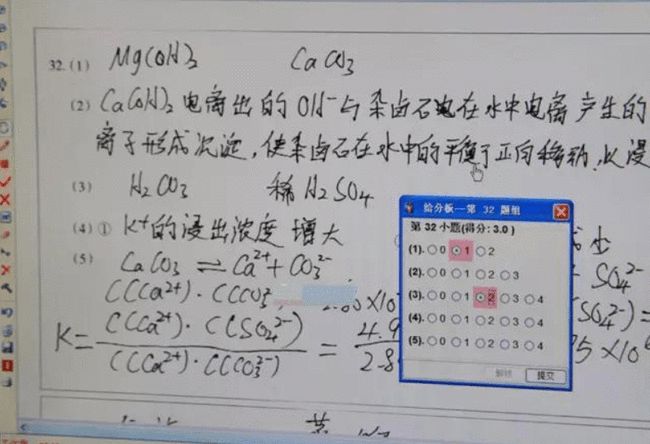 32.(1) Mg(OH)2 CaCO3
(2) Ca(OH)2 电离出的 OH⁻与杂卤石电在水中电离产生的
离子形成沉淀，使杂卤石在水中的平衡于正向移动，以浸
(3) H2CO3 稀 H2SO4
(4) ① K⁺的浸出浓度 增大
(5) CaCO3 ⇌ Ca²⁺ + CO3²⁻
SO4²⁻
C(Ca²⁺)·C(CO3
K= C(Ca²⁺)·C(SO4²⁻) / C(Ca²⁺)·C(CO3²⁻) = 4.9 / 2.8
给分板—第 32 题组
第 32 小题(得分: 3.0 )
(1). 0 1 2
(2). 0 1 2 3
(3). 0 1 2 3 4
(4). 0 1 2 3 4
(5). 0 1 2 3 4
提交